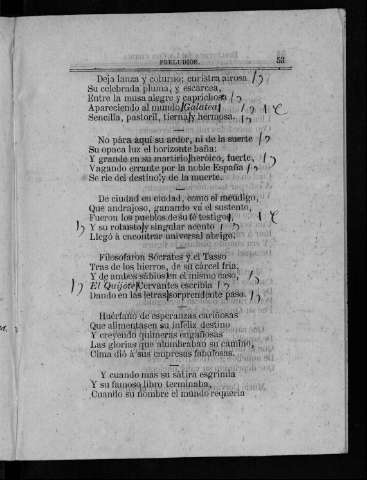 PRELUDIOS. 53
Deja lanza y coturno; enristra airosa
Su celebrada pluma, y escarcea,
Entre la musa alegre y caprichosa
Apareciendo al mundo Galatea
Sencilla, pastoril, tierna y hermosa.
No pára aquí su ardor, ni de la suerte
Su opaca luz el horizonte baña:
Y grande en su martirio heróico, fuerte,
Vagando errante por la noble España
Se rie del destino y de la muerte.
De ciudad en ciudad, como el mendigo,
Que andrajoso, ganando vá el sustento,
Fueron los pueblos de su fé testigo,
Y su robusto y singular acento
Llegó á encontrar universal abrigo.
Filosofaron Sócrates y el Tasso
Tras de los hierros, de su cárcel fria,
Y de ambos sábios en el mismo caso,
El Quijote Cervantes escribia
Dando en las letras sorprendente paso.
Huérfano de esperanzas cariñosas
Que alimentasen su infeliz destino
Y creyendo quimeras engañosas
Las glorias que alumbraban su camino,
Cima dió á sus empresas fabulosas.
Y cuando mas su sátira esgrimia
Y su famoso libro terminaba,
Cuando su nombre el mundo requeria